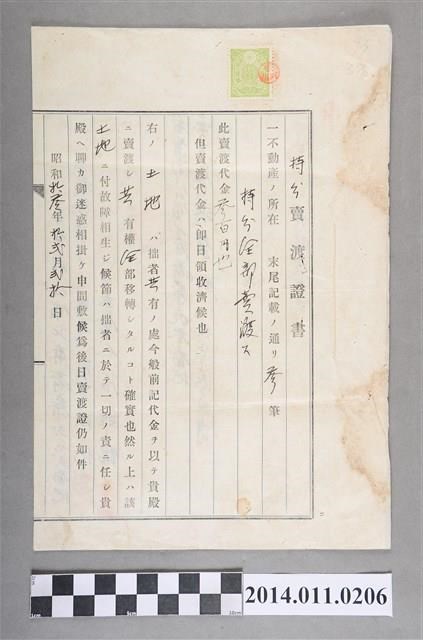 持分賣渡證書
一不動産ノ所在 末尾記載ノ通リ 参筆
持分全部賣渡ス
此賣渡代金参百円也
但賣渡代金ハ即日領收濟候也
右ノ土地ハ拙者共有ノ處今般前記代金ヲ以テ貴殿
ニ賣渡し共有權全部移轉シタルコト確實也然ル上ハ該
土地ニ付故障相生ジ候節ハ拙者ニ於テ一切ノ責ニ任し貴
殿ヘ聊カ御迷惑相掛ケ申間敷候爲後日賣渡證仍如件
昭和拾参年拾弐月弐拾日
2014.011.0206
1cm
5cm
10cm